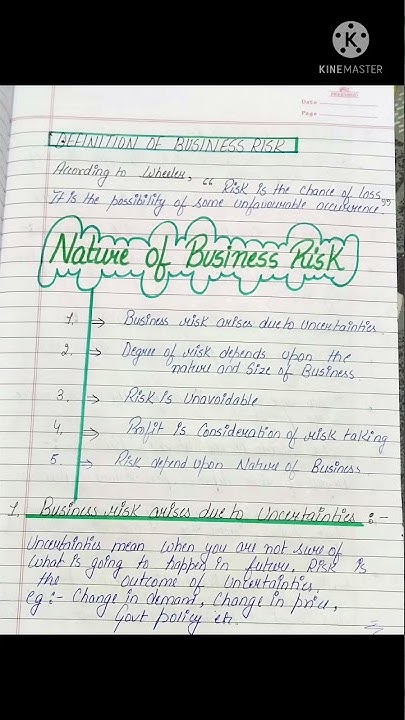 KINEMASTER
Date
Page
DEFINITION OF BUSINESS RISK
According to Wheeler, "Risk is the chance of loss
It is the possibility of some unfavourable occurrence."
Nature of Business Risk
1. → Business risk arises due to Uncertainties
2. → Degree of risk depends upon the
nature and Size of Business
3. → Risk is Unavoidable
4, → Profit is Consideration of risk taking
5. → Risk depend upon Nature of Business
1. Business risk arises due to Uncertainties :-
Uncertainties mean when you are not sure of
what is going to happen in future, Risk is
the outcome of Uncertainties.
eg:- Change in demand, Change in price,
Govt policy etc.